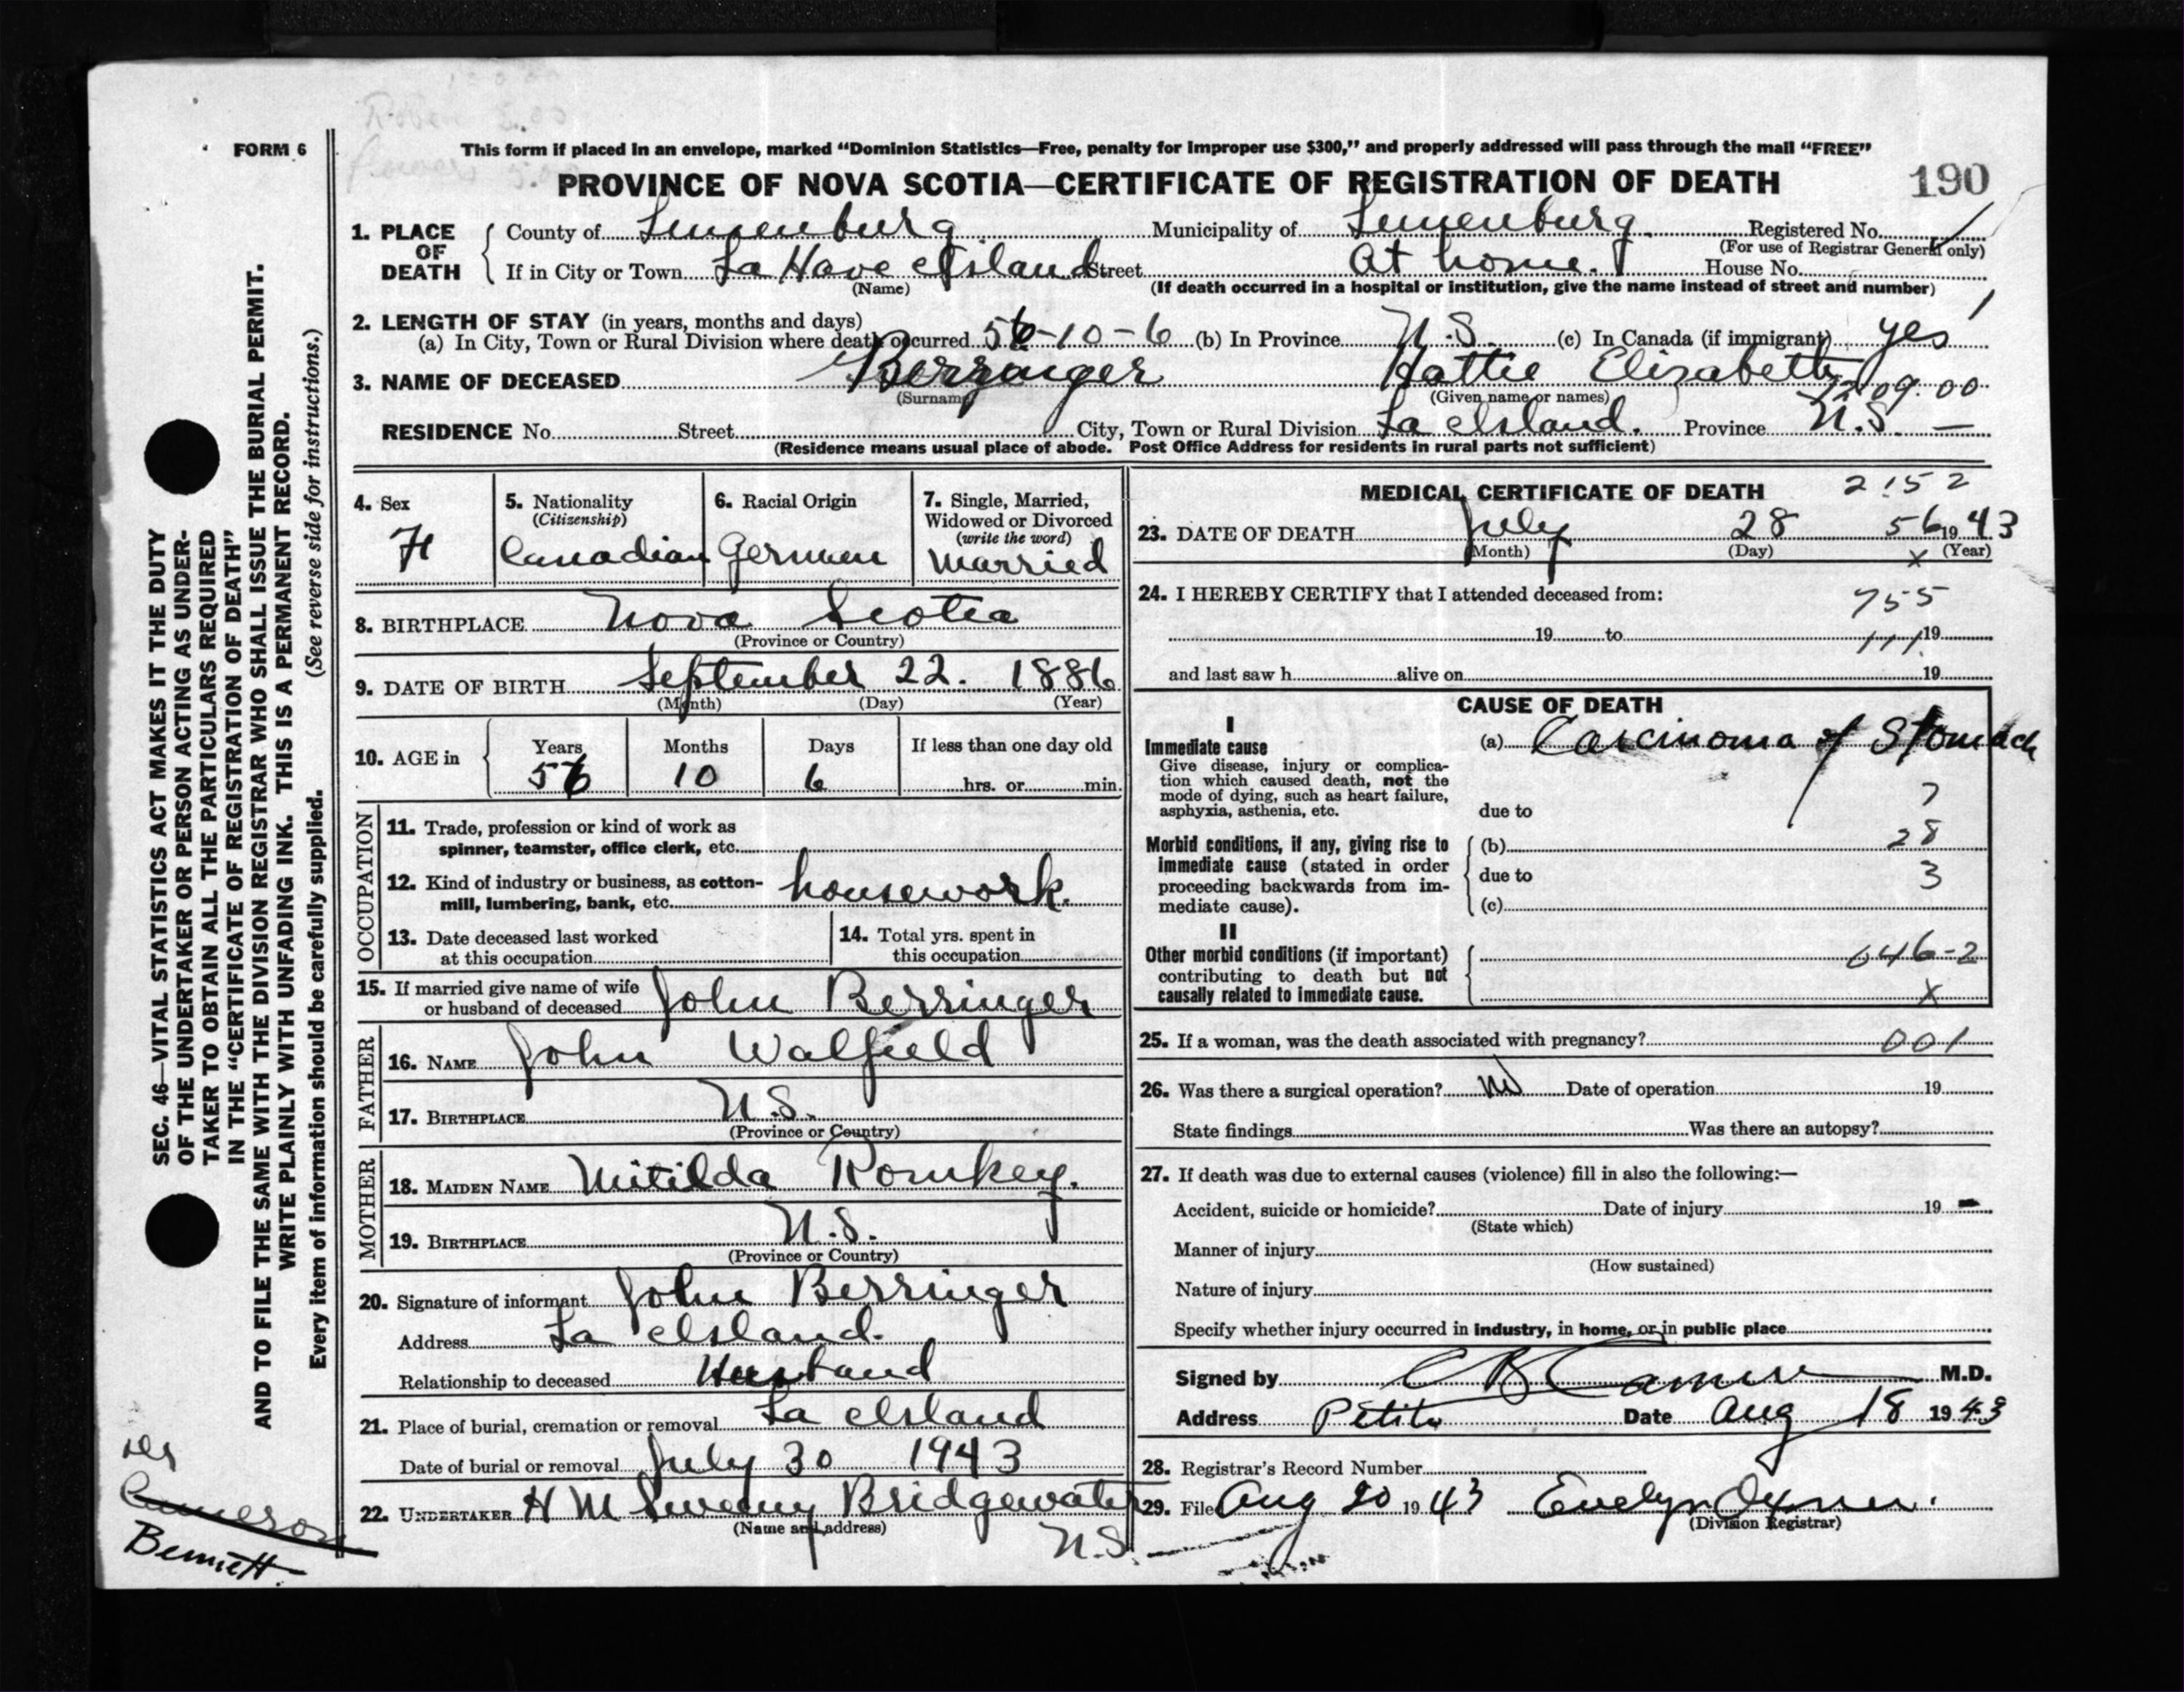 FORM 6
This form if placed in an envelope, marked “Dominion Statistics—Free, penalty for improper use $300,” and properly addressed will pass through the mail “FREE”
PROVINCE OF NOVA SCOTIA—CERTIFICATE OF REGISTRATION OF DEATH
190
1. PLACE OF DEATH
County of Lunenburg Municipality of Lunenburg Registered No.
(For use of Registrar General only)
If in City or Town La Have Island Street At home. House No.
(Name) (If death occurred in a hospital or institution, give the name instead of street and number)
2. LENGTH OF STAY (in years, months and days)
(a) In City, Town or Rural Division where death occurred 56-10-6 (b) In Province N.S. (c) In Canada (if immigrant) yes
3. NAME OF DECEASED Berringer Hattie Elizabeth
(Surname) (Given name or names)
09.00
RESIDENCE No. Street City, Town or Rural Division La Island. Province N.S. —
(Residence means usual place of abode. Post Office Address for residents in rural parts not sufficient)
4. Sex
F
5. Nationality
(Citizenship)
Canadian
6. Racial Origin
German
7. Single, Married,
Widowed or Divorced
(write the word)
Married
8. BIRTHPLACE Nova Scotia
(Province or Country)
9. DATE OF BIRTH September 22. 1886
(Month) (Day) (Year)
10. AGE in
Years Months Days If less than one day old
56 10 6 hrs. or min.
OCCUPATION
11. Trade, profession or kind of work as
spinner, teamster, office clerk, etc.
12. Kind of industry or business, as cotton-
mill, lumbering, bank, etc. housework.
13. Date deceased last worked
at this occupation
14. Total yrs. spent in
this occupation
15. If married give name of wife
or husband of deceased John Berringer
FATHER
16. NAME John Walfield
17. BIRTHPLACE N.S.
(Province or Country)
MOTHER
18. MAIDEN NAME Mitilda Romkey.
19. BIRTHPLACE N.S.
(Province or Country)
20. Signature of informant John Berringer
Address La Island.
Relationship to deceased Husband
21. Place of burial, cremation or removal La Island
Date of burial or removal July 30 1943
22. UNDERTAKER H M Sweeny Bridgewater
(Name and address)
N.S.
MEDICAL CERTIFICATE OF DEATH
2152
23. DATE OF DEATH July 28 56 1943
(Month) (Day) x (Year)
24. I HEREBY CERTIFY that I attended deceased from:
755
19 to 19
111
and last saw h alive on 19
CAUSE OF DEATH
I
Immediate cause
Give disease, injury or complica-
tion which caused death, not the
mode of dying, such as heart failure,
asphyxia, asthenia, etc.
(a) Carcinoma of Stomach
due to 7
Morbid conditions, if any, giving rise to
immediate cause (stated in order
proceeding backwards from im-
mediate cause).
(b) 28
due to 3
(c)
II
Other morbid conditions (if important)
contributing to death but not
causally related to immediate cause.
046-2
x
25. If a woman, was the death associated with pregnancy? 001
26. Was there a surgical operation? no Date of operation 19
State findings Was there an autopsy?
27. If death was due to external causes (violence) fill in also the following:—
Accident, suicide or homicide? Date of injury 19 -
(State which)
Manner of injury
(How sustained)
Nature of injury
Specify whether injury occurred in industry, in home, or in public place
Signed by M.D.
Address Petite Date Aug 18 1943
28. Registrar's Record Number
29. File Aug 20 1943 Evelyn
(Division Registrar)
SEC. 46—VITAL STATISTICS ACT MAKES IT THE DUTY
OF THE UNDERTAKER OR PERSON ACTING AS UNDER-
TAKER TO OBTAIN ALL THE PARTICULARS REQUIRED
IN THE “CERTIFICATE OF REGISTRATION OF DEATH”
AND TO FILE THE SAME WITH THE DIVISION REGISTRAR WHO SHALL ISSUE THE BURIAL PERMIT.
WRITE PLAINLY WITH UNFADING INK. THIS IS A PERMANENT RECORD.
Every item of information should be carefully supplied. (See reverse side for instructions.)
Cameron
Bennett